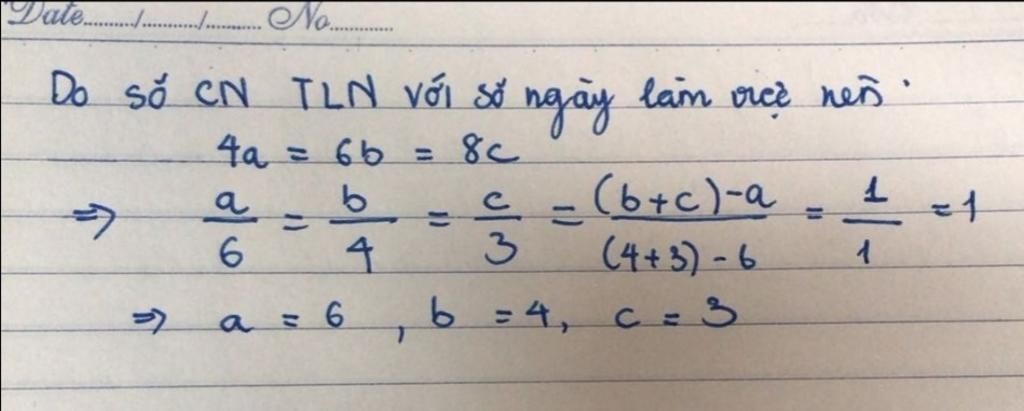 Date......../........../.......... No............
Do số CN TLN với số ngày làm việc nên
4a = 6b = 8c
=> a/6 = b/4 = c/3 = (b+c)-a/(4+3)-6 = 1/1 = 1
=> a = 6, b = 4, c = 3